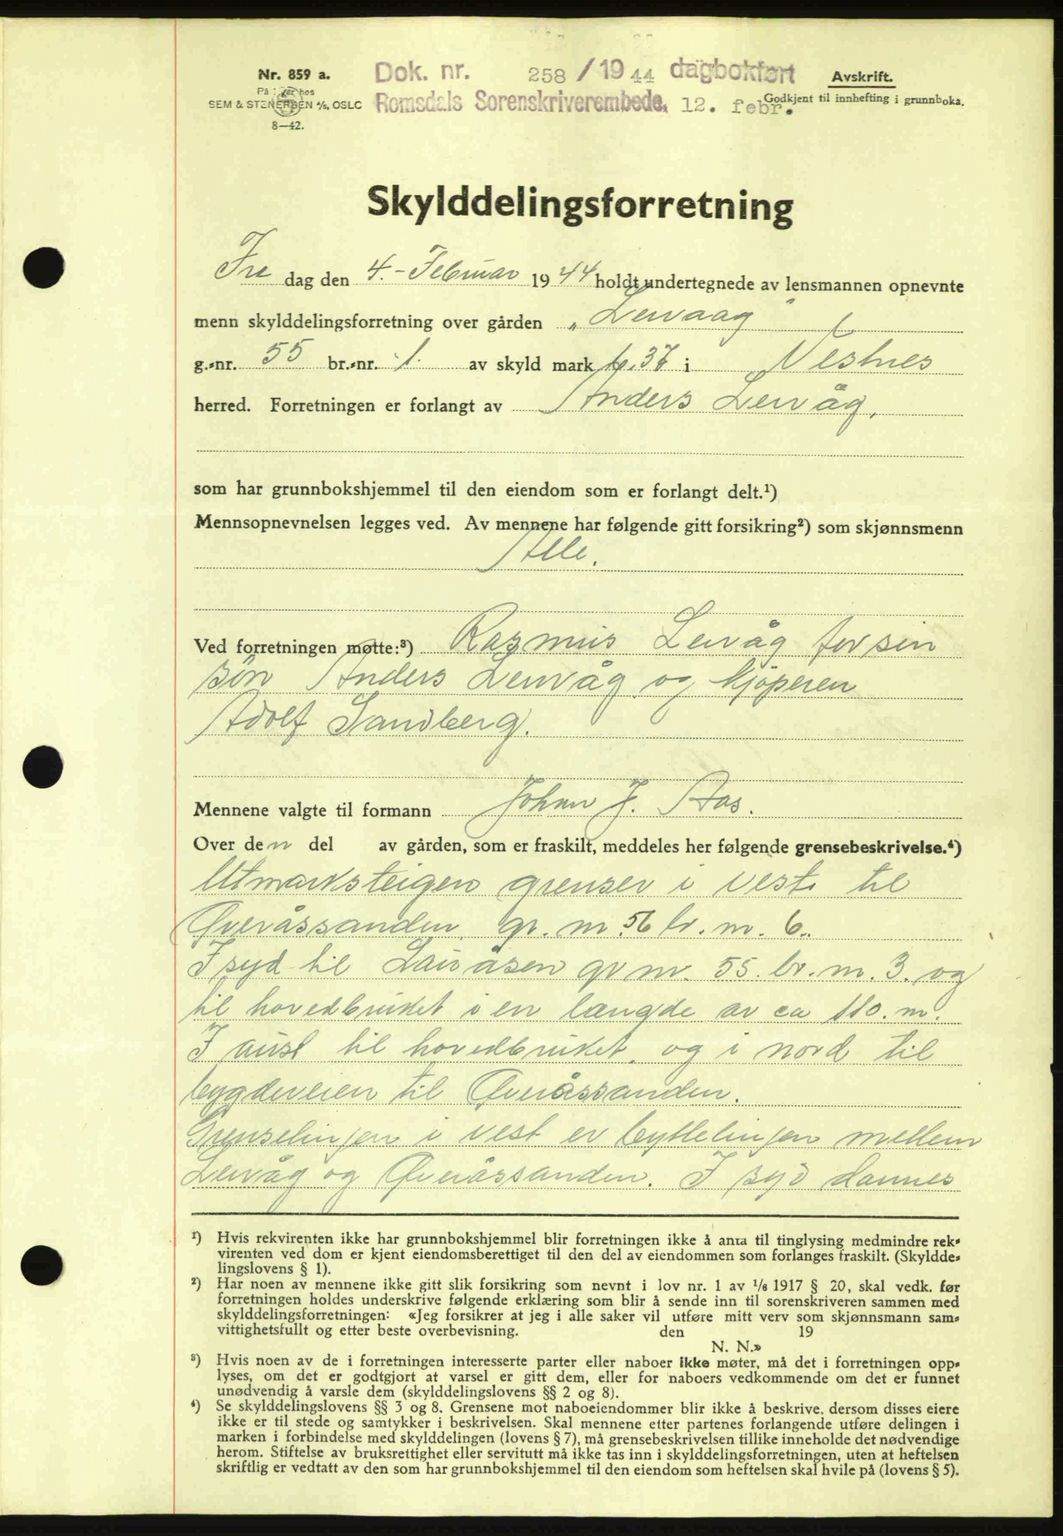 Nr. 859 a.
På lager hos
SEM & STENERSEN A/S, OSLO
8—42.
Dok. nr. 258 / 1944 dagbokført
Romsdals Sorenskriverembede, 12. febr.
Avskrift.
Godkjent til innhefting i grunnboka.
Skylddelingsforretning
Fre dag den 4.- Februar 1944 holdt undertegnede av lensmannen opnevnte
menn skylddelingsforretning over gården „Leirvaag"
g.-nr. 55 br.-nr. 1. av skyld mark 6.37 i Vestnes
herred. Forretningen er forlangt av Anders Leirvåg,
som har grunnbokshjemmel til den eiendom som er forlangt delt.¹)
Mennsopnevnelsen legges ved. Av mennene har følgende gitt forsikring²) som skjønnsmenn
Alle.
Ved forretningen møtte:³) Rasmus Leirvåg for sin
søn Anders Leirvåg og kjøperen
Adolf Sandberg.
Mennene valgte til formann Johan J. Aas.
Over den del av gården, som er fraskilt, meddeles her følgende grensebeskrivelse.⁴)
Utmarksteigen grenser i vest til
Øveråssanden gr. nr. 56 br. nr. 6.
I syd til gr nr. 55. br. nr. 3. og
til hovedbruket i en længde av ca 110. m.
I aust til hovedbruket og i nord til
bygdeveien til Øveråssanden.
Grenselinjen i vest er byttelinjen mellem
Leirvåg og Øveråssanden. I syd dannes
¹) Hvis rekvirenten ikke har grunnbokshjemmel blir forretningen ikke å anta til tinglysing medmindre rek-
virenten ved dom er kjent eiendomsberettiget til den del av eiendommen som forlanges fraskilt. (Skyldde-
lingslovens § 1).
²) Har noen av mennene ikke gitt slik forsikring som nevnt i lov nr. 1 av ¹/₈ 1917 § 20, skal vedk. før
forretningen holdes underskrive følgende erklæring som blir å sende inn til sorenskriveren sammen med
skylddelingsforretningen: «Jeg forsikrer at jeg i alle saker vil utføre mitt verv som skjønnsmann sam-
vittighetsfullt og etter beste overbevisning. den 19
N. N.»
³) Hvis noen av de i forretningen interesserte parter eller naboer ikke møter, må det i forretningen opp-
lyses, om det er godtgjort at varsel er gitt dem, eller for naboers vedkommende om det er funnet
unødvendig å varsle dem (skylddelingslovens §§ 2 og 8).
⁴) Se skylddelingslovens §§ 3 og 8. Grensene mot naboeiendommer blir ikke å beskrive, dersom disses eiere
ikke er til stede og samtykker i beskrivelsen. Skal mennene etter partenes forlangende utføre delingen i
marken i forbindelse med skylddelingen (lovens § 7), må grensebeskrivelsen tillike inneholde det nødvendige
herom. Stiftelse av bruksrettighet eller servitutt må ikke tas inn i skylddelingsforretningen, uten at heftelsen
skriftlig er vedtatt av den som har grunnbokshjemmel til den eiendom som heftelsen skal hvile på (lovens § 5).